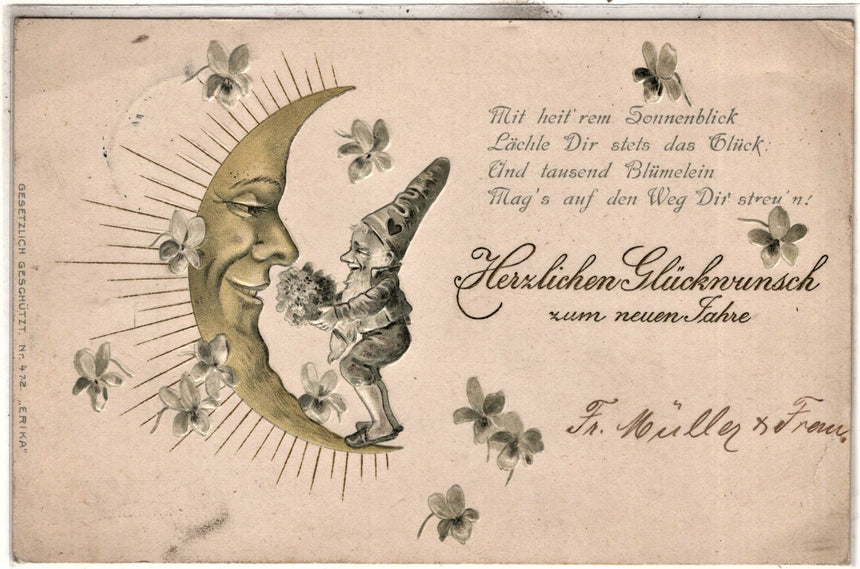 Mit heit'rem Sonnenblick
Lächle Dir stets das Glück.
Und tausend Blümelein
Mag's auf den Weg Dir streu'n!
Herzlichen Glückwunsch
zum neuen Jahre
Fr. Müller & Frau.
GESETZLICH GESCHÜTZT. Nr. 472. „ERIKA"